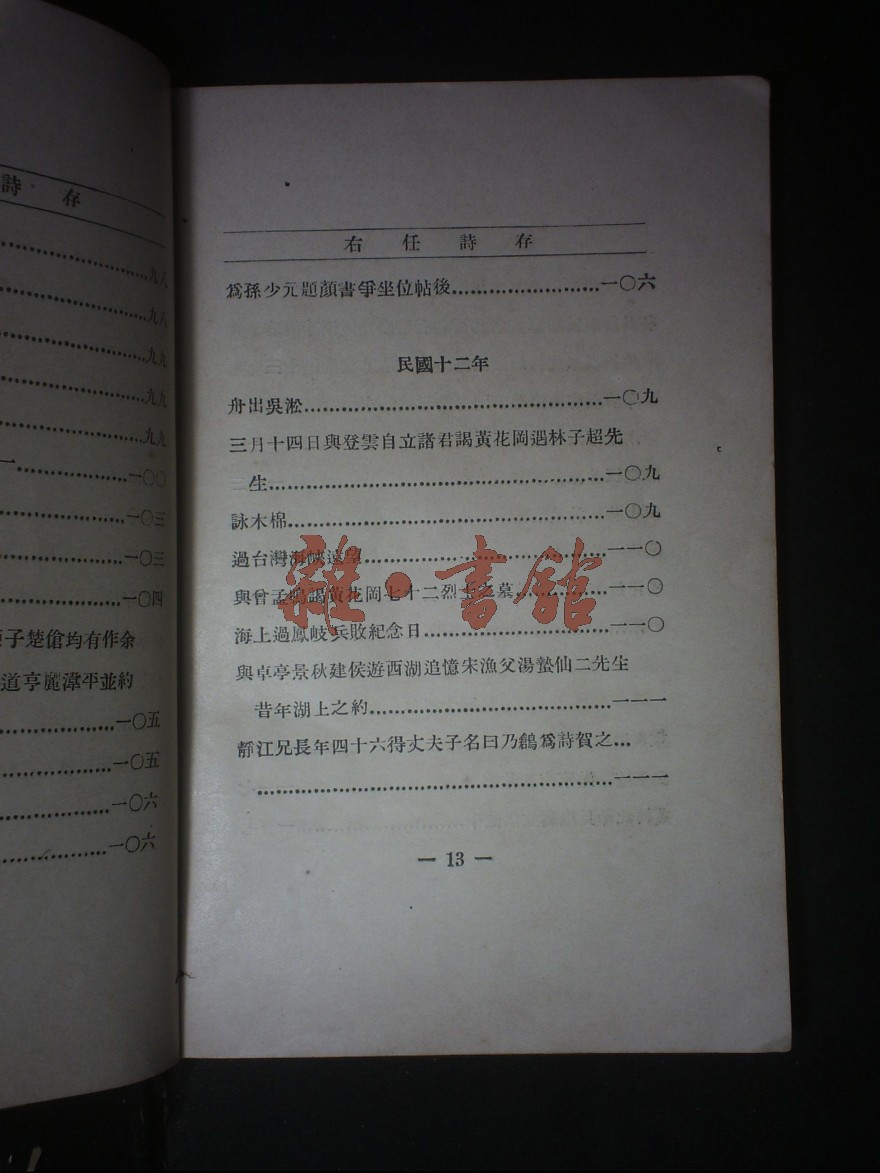 詩存
九八
九八
九九
九九
九九
一〇〇
一〇三
一〇三
一〇四
子楚傖均有作余
道亨麗潭平並約
一〇五
一〇五
一〇六
一〇六
右任詩存
爲孫少元題顏書爭坐位帖後……一〇六
民國十二年
舟出吳淞……一〇九
三月十四日與登雲自立諸君謁黃花岡遇林子超先
生……一〇九
詠木棉……一〇九
過台灣海峽遠望……一一〇
與曾孟鳴謁黃花岡七十二烈士之墓……一一〇
海上過鳳岐兵敗紀念日……一一〇
與卓亭景秋建侯遊西湖追憶宋漁父湯蟄仙二先生
昔年湖上之約……一一一
靜江兄長年四十六得丈夫子名曰乃鶴爲詩賀之…
……一一一
— 13 —
雜·書館